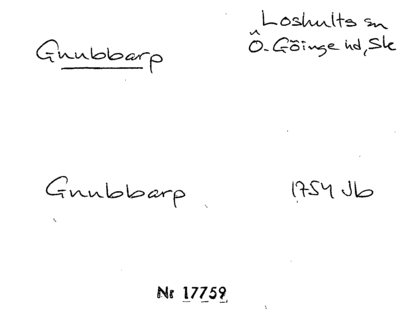 Gnubbarp
Loshults sn
Ö-Göinge hd, Sk
Gnubbarp
1754 Jb
Nr 17759